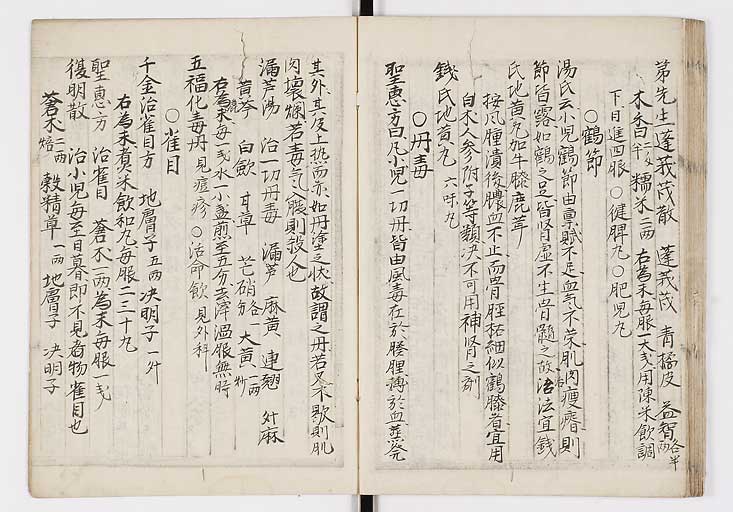 茅先生蓬莪茂散 蓬莪茂 青橘皮 益智各半两
木香二戋半 糯米二两 右為末每服一大戋用陳米飲調
下日進四服 ○健脾丸○肥児丸
○鶴節
湯氏云小児鶴節由稟賦不足血氣不荣肌肉瘦瘠則
節皆露如鶴之足皆肾虚不生骨髓之故治法宜錢
氏地黄丸加牛膝鹿茸
按風腫潰後膿血不止而骨脛枯細似鶴膝者宜用
白术人参附子等類决不可用補肾之剤
錢氏地黄丸 六味丸
○丹毒
聖惠方曰凡小児一切丹皆由風毒在於腠理搏於血蒸𤼵
其外其皮上热而赤如丹塗之状故謂之丹若久不歇則肌
肉壊爛若毒氣入臓則殺人也
漏芦湯 治一切丹毒 漏芦 麻黄 連翹 升麻
黄芩 白飲 甘草 芒硝各一分 大黄一两炒
右為末每一戋水一小盞煎至五分去滓温服無時
五福化毒丹 見痘疹 ○活命飲 見外科
○雀目
千金治雀目方 地膚子五两 决明子一升
右為末煮米飲和丸每服二三十丸
聖惠方 治雀目 蒼术一两為末每服一戋
復明散 治小児每至日暮即不見物雀目也
蒼术二两焙 穀精草一两 地膚子 决明子